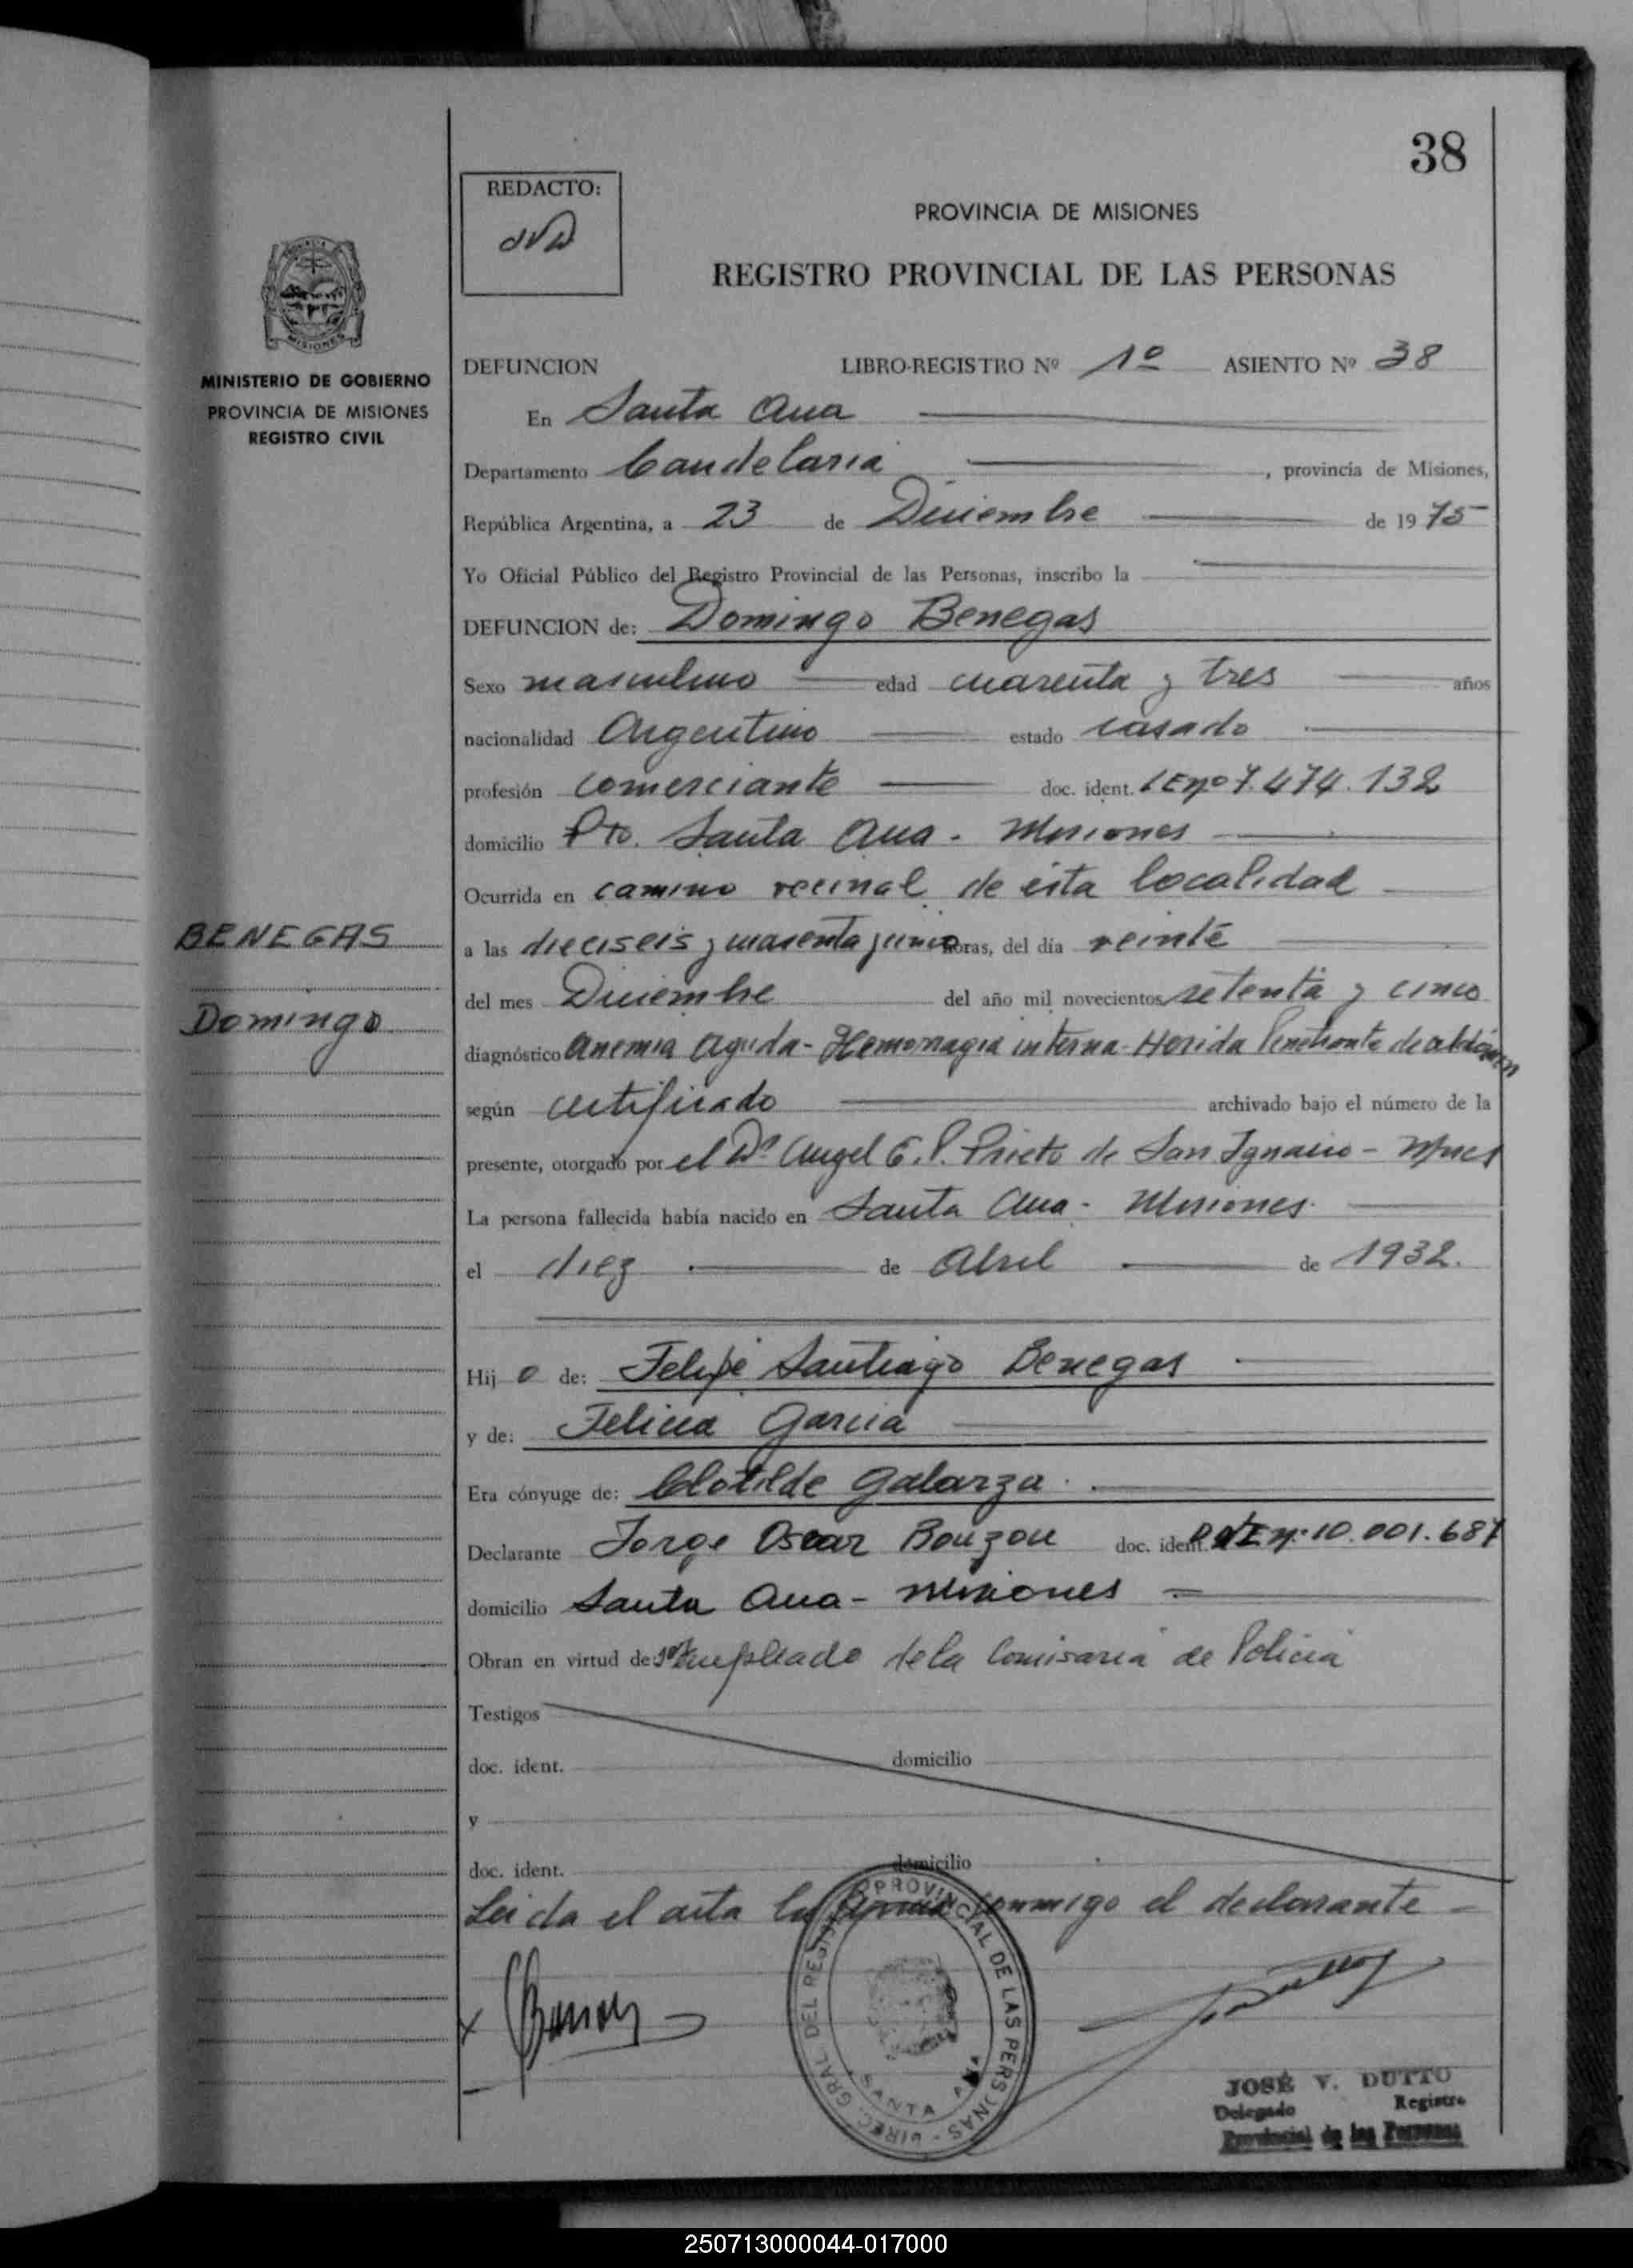 38
REDACTO:
PROVINCIA DE MISIONES
REGISTRO PROVINCIAL DE LAS PERSONAS
MISIONES
MINISTERIO DE GOBIERNO
PROVINCIA DE MISIONES
REGISTRO CIVIL
DEFUNCION LIBRO-REGISTRO Nº 1º ASIENTO Nº 38
En Santa Ana
Departamento Candelaria, provincia de Misiones,
República Argentina, a 23 de Diciembre de 1975
Yo Oficial Público del Registro Provincial de las Personas, inscribo la
DEFUNCION de: Domingo Benegas
Sexo masculino edad cuarenta y tres años
nacionalidad Argentino estado casado
profesión comerciante doc. ident. LE nº 7.474.132
domicilio Pto. Santa Ana - Misiones
Ocurrida en camino vecinal de esta localidad
BENEGAS
Domingo
a las dieciseis y cuarenta y cinco horas, del día veinte
del mes Diciembre del año mil novecientos setenta y cinco
diagnóstico Anemia Aguda - Hemorragia interna - Herida Penetrante de abdomen
según certificado archivado bajo el número de la
presente, otorgado por el Dr. Angel E. P. Prieto de San Ignacio - Mnes
La persona fallecida había nacido en Santa Ana - Misiones.
el diez de Abril de 1932.
Hijo de: Felipe Santiago Benegas
y de: Felicia Garcia
Era cónyuge de: Clotilde Galarza.
Declarante Jorge Oscar Bouzon doc. ident. nº 10.001.687
domicilio Santa Ana - Misiones
Obran en virtud de ser Empleado de la Comisaria de Policia
Testigos
doc. ident. domicilio
y
doc. ident. domicilio
Leida el acta la firma conmigo el declarante
DIREC. GRAL DEL REGISTRO PROVINCIAL DE LAS PERSONAS
SANTA ANA
JOSÉ V. DUTTO
Delegado Registro
Provincial de las Personas
250713000044-017000